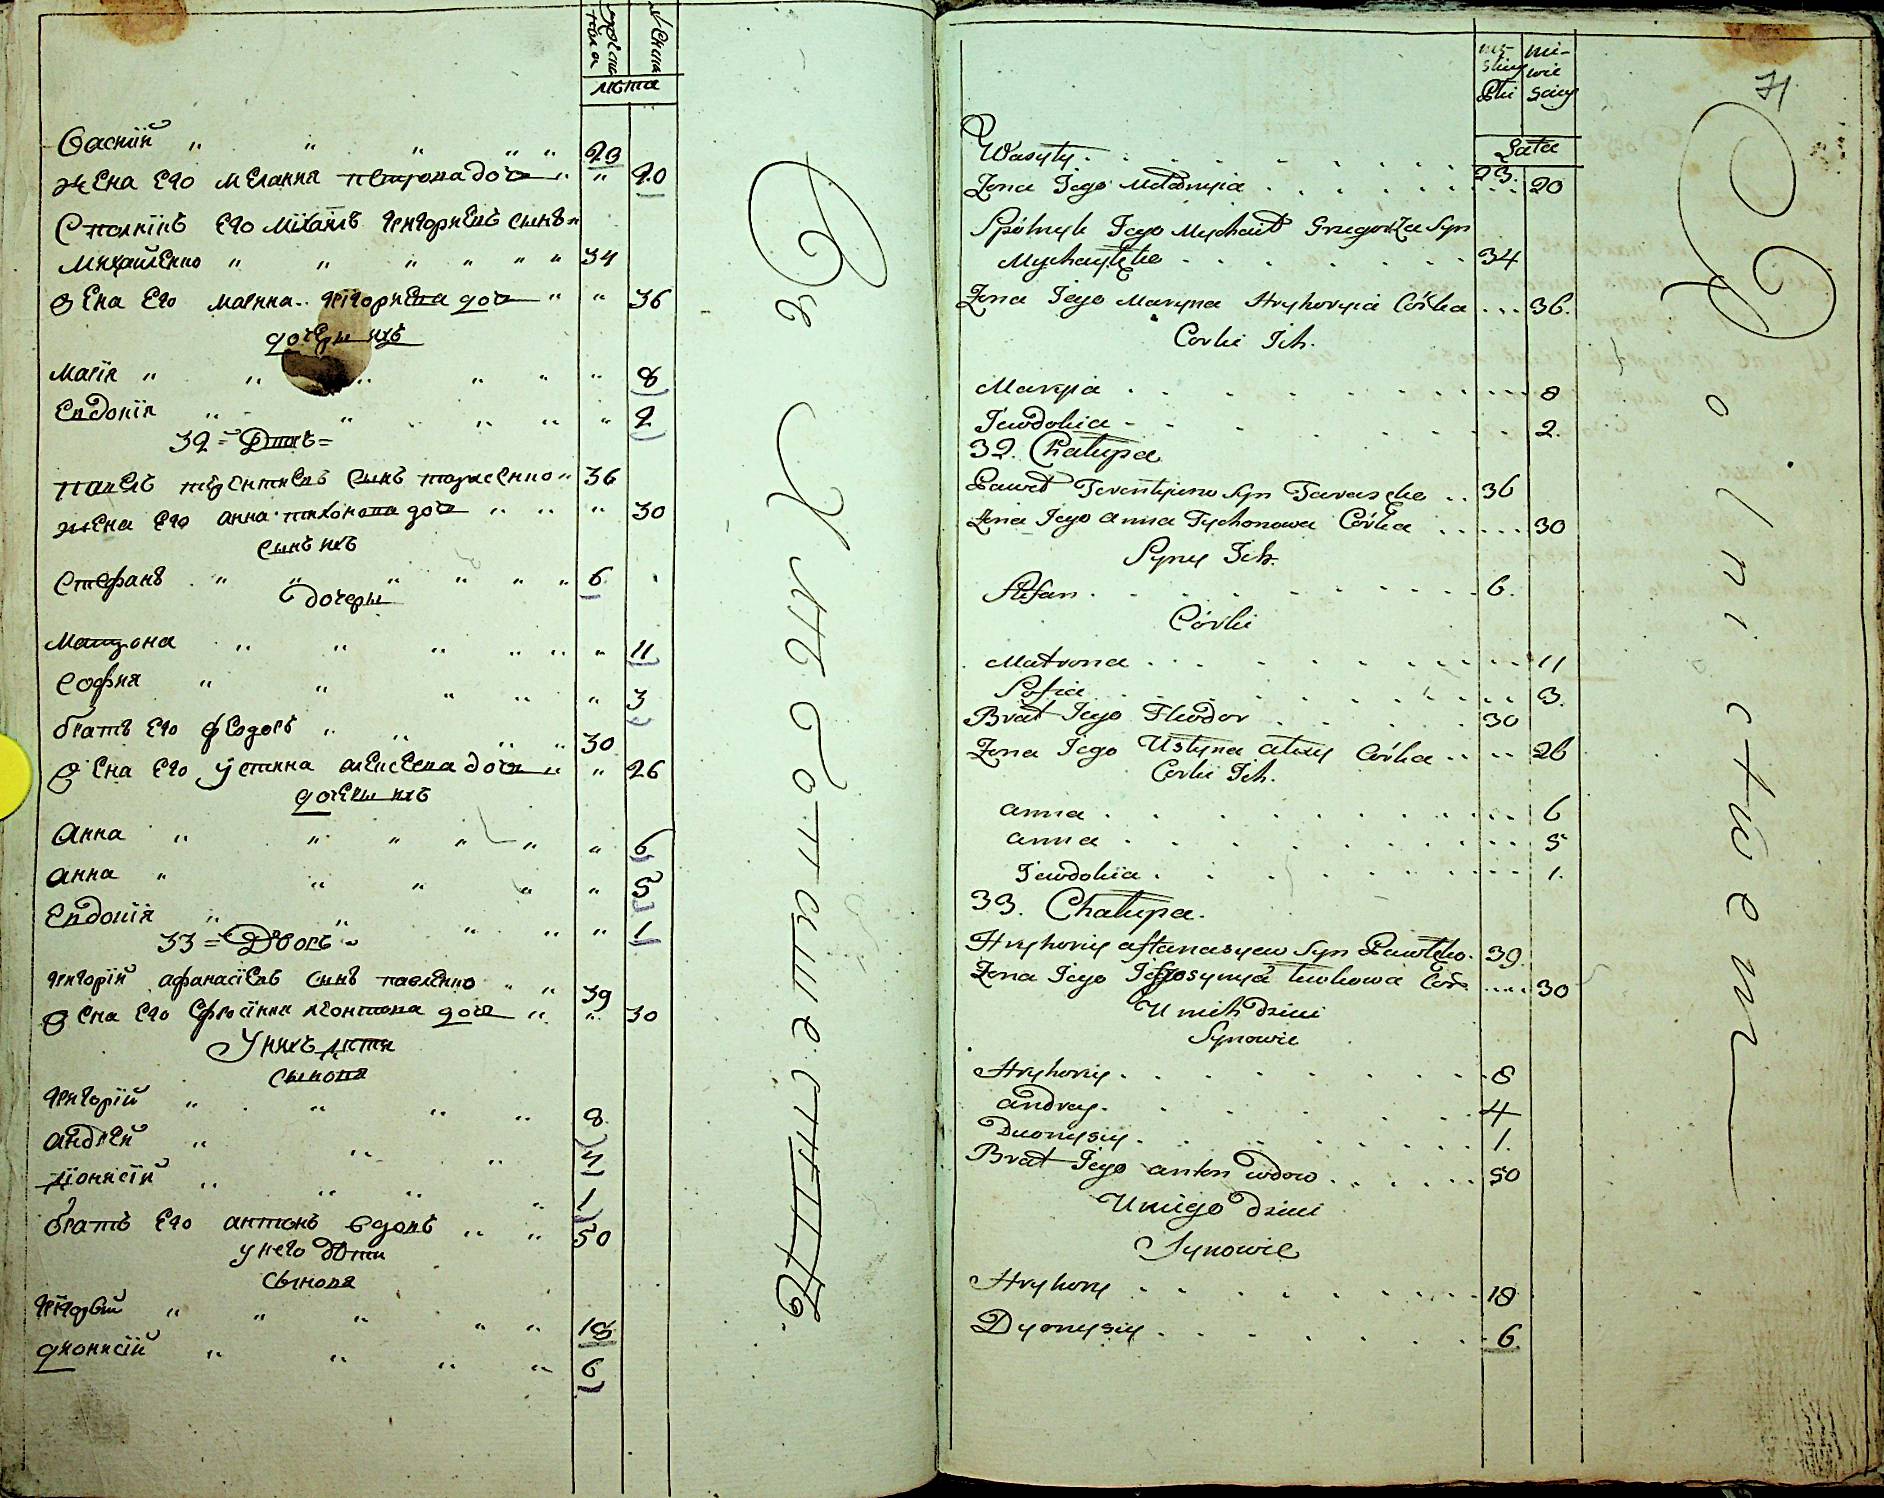 мужеска
пола
женска
лѣта
Василій 23
жена его мелания петрова дочь 20
Сполникъ его михаилъ григориевъ сынъ
михайленко 34
жена его марина григориева дочь 36
дочери ихъ
мария 8
Евдокія 2
32 = Дворъ =
павелъ терентиевъ сынъ тарасенко 36
жена его анна тихонова дочь 30
сынъ ихъ
стефанъ 6
дочери
матрона 11
софия 3
братъ его феодоръ 30
жена его устина алексеева дочь 26
дочери ихъ
анна 6
анна 5
Евдокія 1
33 = Дворъ
григорій афанасіевъ сынъ павленко 39
жена его Ефросінна леонтова дочь 30
У нихъ дѣти
сынови
григорій 8
андрей 4
діонисій 1
братъ его антонъ вдовъ 50
у него дѣти
сыновя
григорій 18
дионисій 6
męskiey
Płci
niewiesciey
Lata
71
Wasyły 23
Zona Jego Mełanyia 20
Spólnyk Jego Mychaił Grzegorza Syn
Mychayłęko 34
Zona Jego Maryna Hryhoryia Córka 36.
Corki Ich.
Maryia 8
Jewdokia 2.
32. Chałupa
Paweł Terentyiow Syn Tarasęko 36
Zona Jego anna Tychonowa Córka 30
Syny Ich.
Stefan 6.
Córki
Matrona 11
Sofia 3.
Brat Jego Fheodor 30
Zona Jego Ustyna alexy Córka 26
Corki Ich.
anna 6
anna 5
Jewdokia 1.
33. Chałupa.
Hryhoriy aftanasyew Syn Pawłęko. 39.
Zona Jego Jefrosynya Cór. 30
U nich dzieci
Synowie
Hryhoriy 8
andrey. 4
Dionysiy. 1.
Brat Jego anton wdow 50
U niego dzieci
Synowie
Hryhory 18
Dyonysiy 6